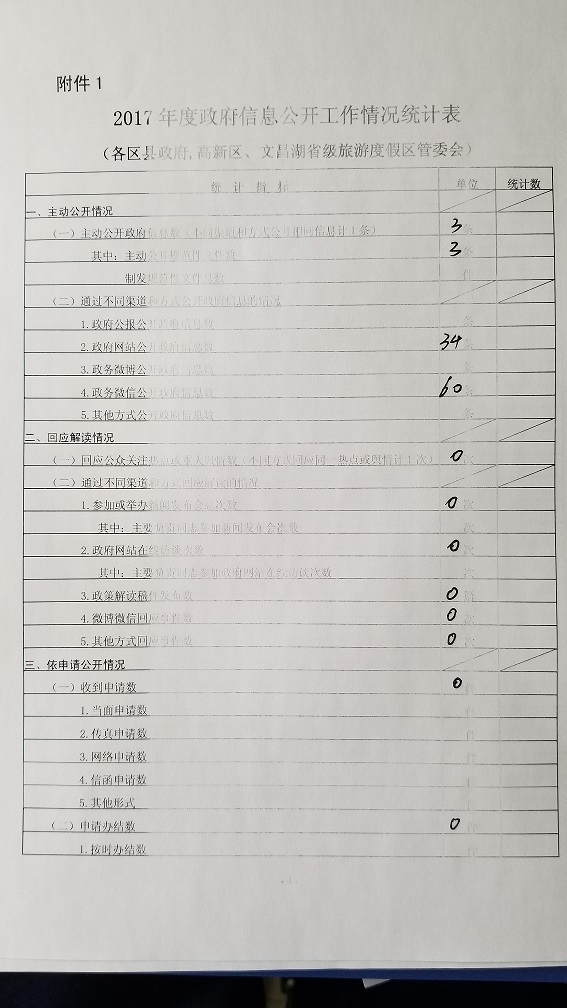 附件1
2017年度政府信息公开工作情况统计表
（各区县政府,高新区、文昌湖省级旅游度假区管委会）
统 计 指 标 单位 统计数
一、主动公开情况
（一）主动公开政府信息数（不同渠道和方式公开相同信息计1条） 3 条
其中：主动公开规范性文件数 3 条
制发规范性文件总数 件
（二）通过不同渠道和方式公开政府信息的情况
1.政府公报公开政府信息数 条
2.政府网站公开政府信息数 34 条
3.政务微博公开政府信息数 条
4.政务微信公开政府信息数 60 条
5.其他方式公开政府信息数 条
二、回应解读情况
（一）回应公众关注热点或重大舆情数（不同方式回应同一热点或舆情计1次） 0 次
（二）通过不同渠道和方式回应解读的情况
1.参加或举办新闻发布会总次数 0 次
其中：主要负责同志参加新闻发布会次数 次
2.政府网站在线访谈次数 0 次
其中：主要负责同志参加政府网站在线访谈次数 次
3.政策解读稿件发布数 0 篇
4.微博微信回应事件数 0 次
5.其他方式回应事件数 0 次
三、依申请公开情况
（一）收到申请数 0 件
1.当面申请数 件
2.传真申请数 件
3.网络申请数 件
4.信函申请数
5.其他形式
（二）申请办结数 0 件
1.按时办结数 件